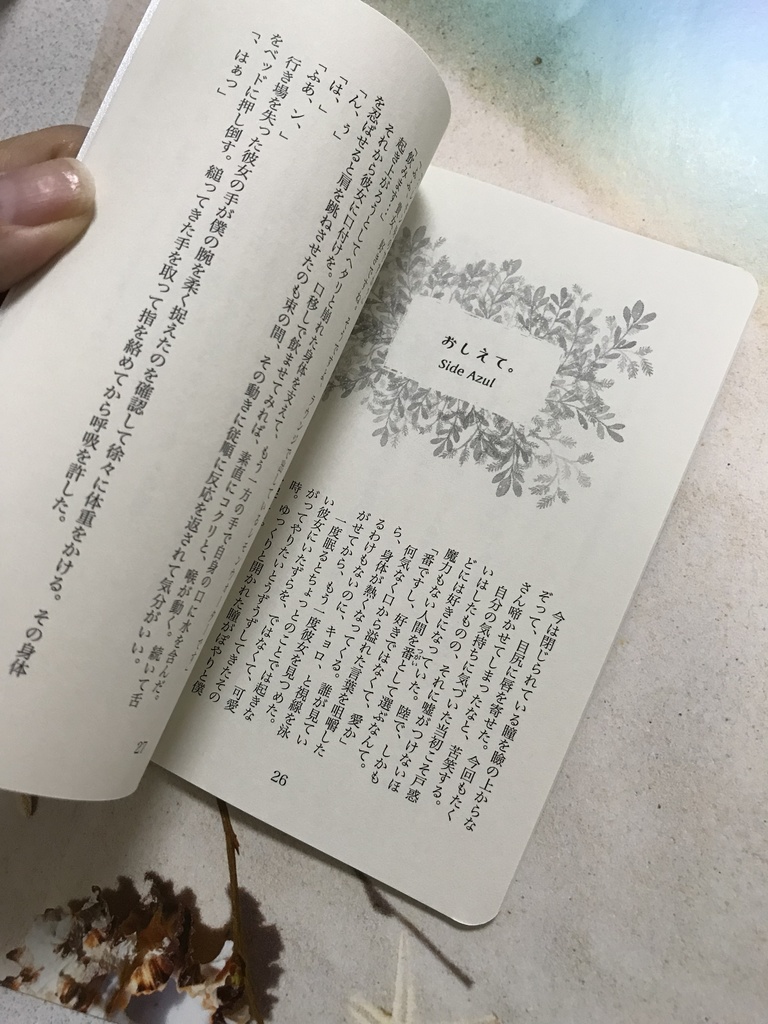 おしえて。
Side Azul
今は閉じられている瞳を瞼の上からな
ぞって、目尻に唇を寄せた。今回もたく
さん啼かせてしまったなと、苦笑する。
自分の気持ちに気づいた当初こそ戸惑
いはしたものの、それに嘘がつけないほ
どには好きになっていた。陸で、しかも
魔力もない人間を番として選ぶなんて。
「番ですし、好きではなくて、愛か」
何気なく口から溢れた言葉を咀嚼した
ら、身体が熱くなってくる。誰が見てい
るわけもないのに、キョロ、と視線を泳
がせてから、もう一度彼女を見つめた。
一度眠るとちょっとのことでは起きな
い彼女にいたずらを、ではなくて、可愛
がってやりたいとうずうずしてきたその
時。ゆっくりと開かれた瞳がぼやりと僕
26
起き上がろうとしてヘタリと崩れた身体を支えて、もう一方の手で自身の口に水を含んだ。
それから彼女に口付けを。口移しで飲ませてみれば、素直にコクリと、喉が動く。続いて舌
を忍ばせると肩を跳ねさせたのも束の間、その動きに従順に反応を返されて気分がいい。
「ん、ぅ」
「は、」
「ふあ、ン、」
行き場を失った彼女の手が僕の腕を柔く捉えたのを確認して徐々に体重をかける。その身体
をベッドに押し倒す。縋ってきた手を取って指を絡めてから呼吸を許した。
「、はぁっ」
27